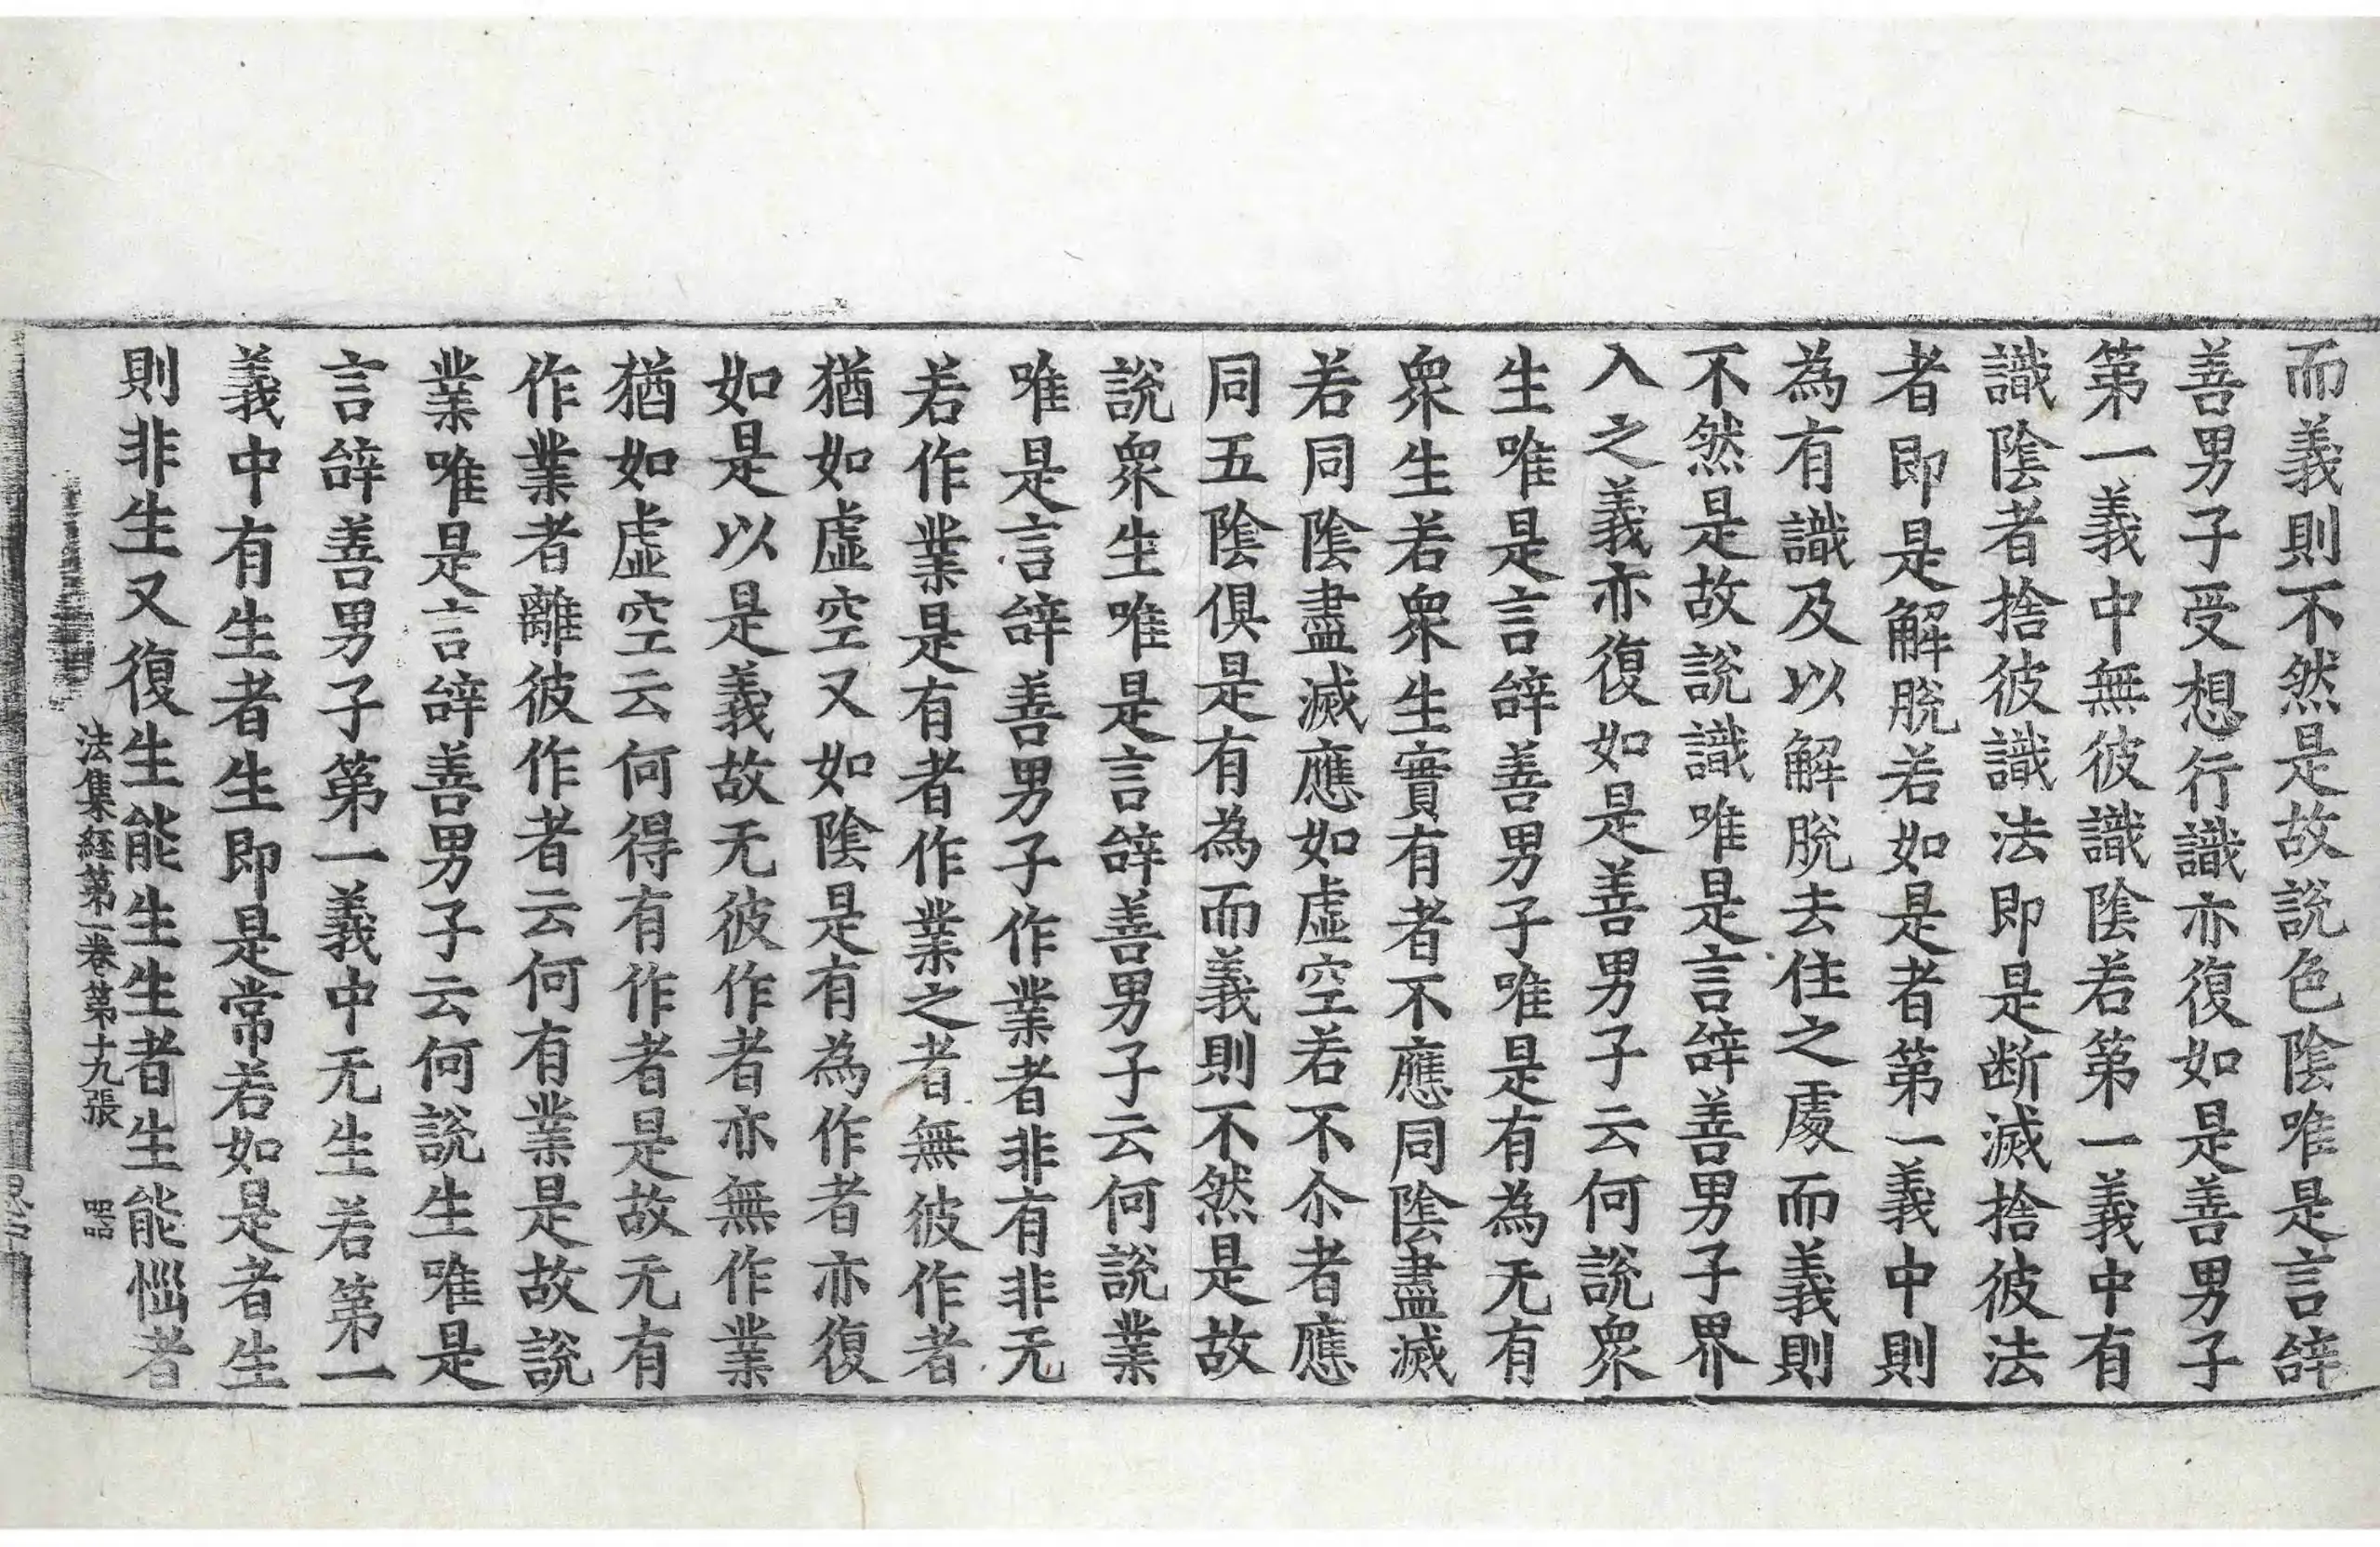 而義則不然是故說色陰唯是言辝
善男子受想行識亦復如是善男子
第一義中無彼識陰若第一義中有
識陰者捨彼識法即是断滅捨彼法
者即是解脫若如是者第一義中則
為有識及以解脫去住之處而義則
不然是故說識唯是言辝善男子界
入之義亦復如是善男子云何說衆
生唯是言辝善男子唯是有為无有
衆生若衆生實有者不應同陰盡滅
若同陰盡滅應如虛空若不尒者應
同五陰俱是有為而義則不然是故
說衆生唯是言辝善男子云何說業
唯是言辝善男子作業者非有非无
若作業是有者作業之者無彼作者
猶如虛空又如陰是有為作者亦復
如是以是義故无彼作者亦無作業
猶如虛空云何得有作者是故无有
作業者離彼作者云何有業是故說
業唯是言辝善男子云何說生唯是
言辝善男子第一義中无生若第一
義中有生者生即是常若如是者生
則非生又復生能生生者生能惱者
法集經第一卷第十九張